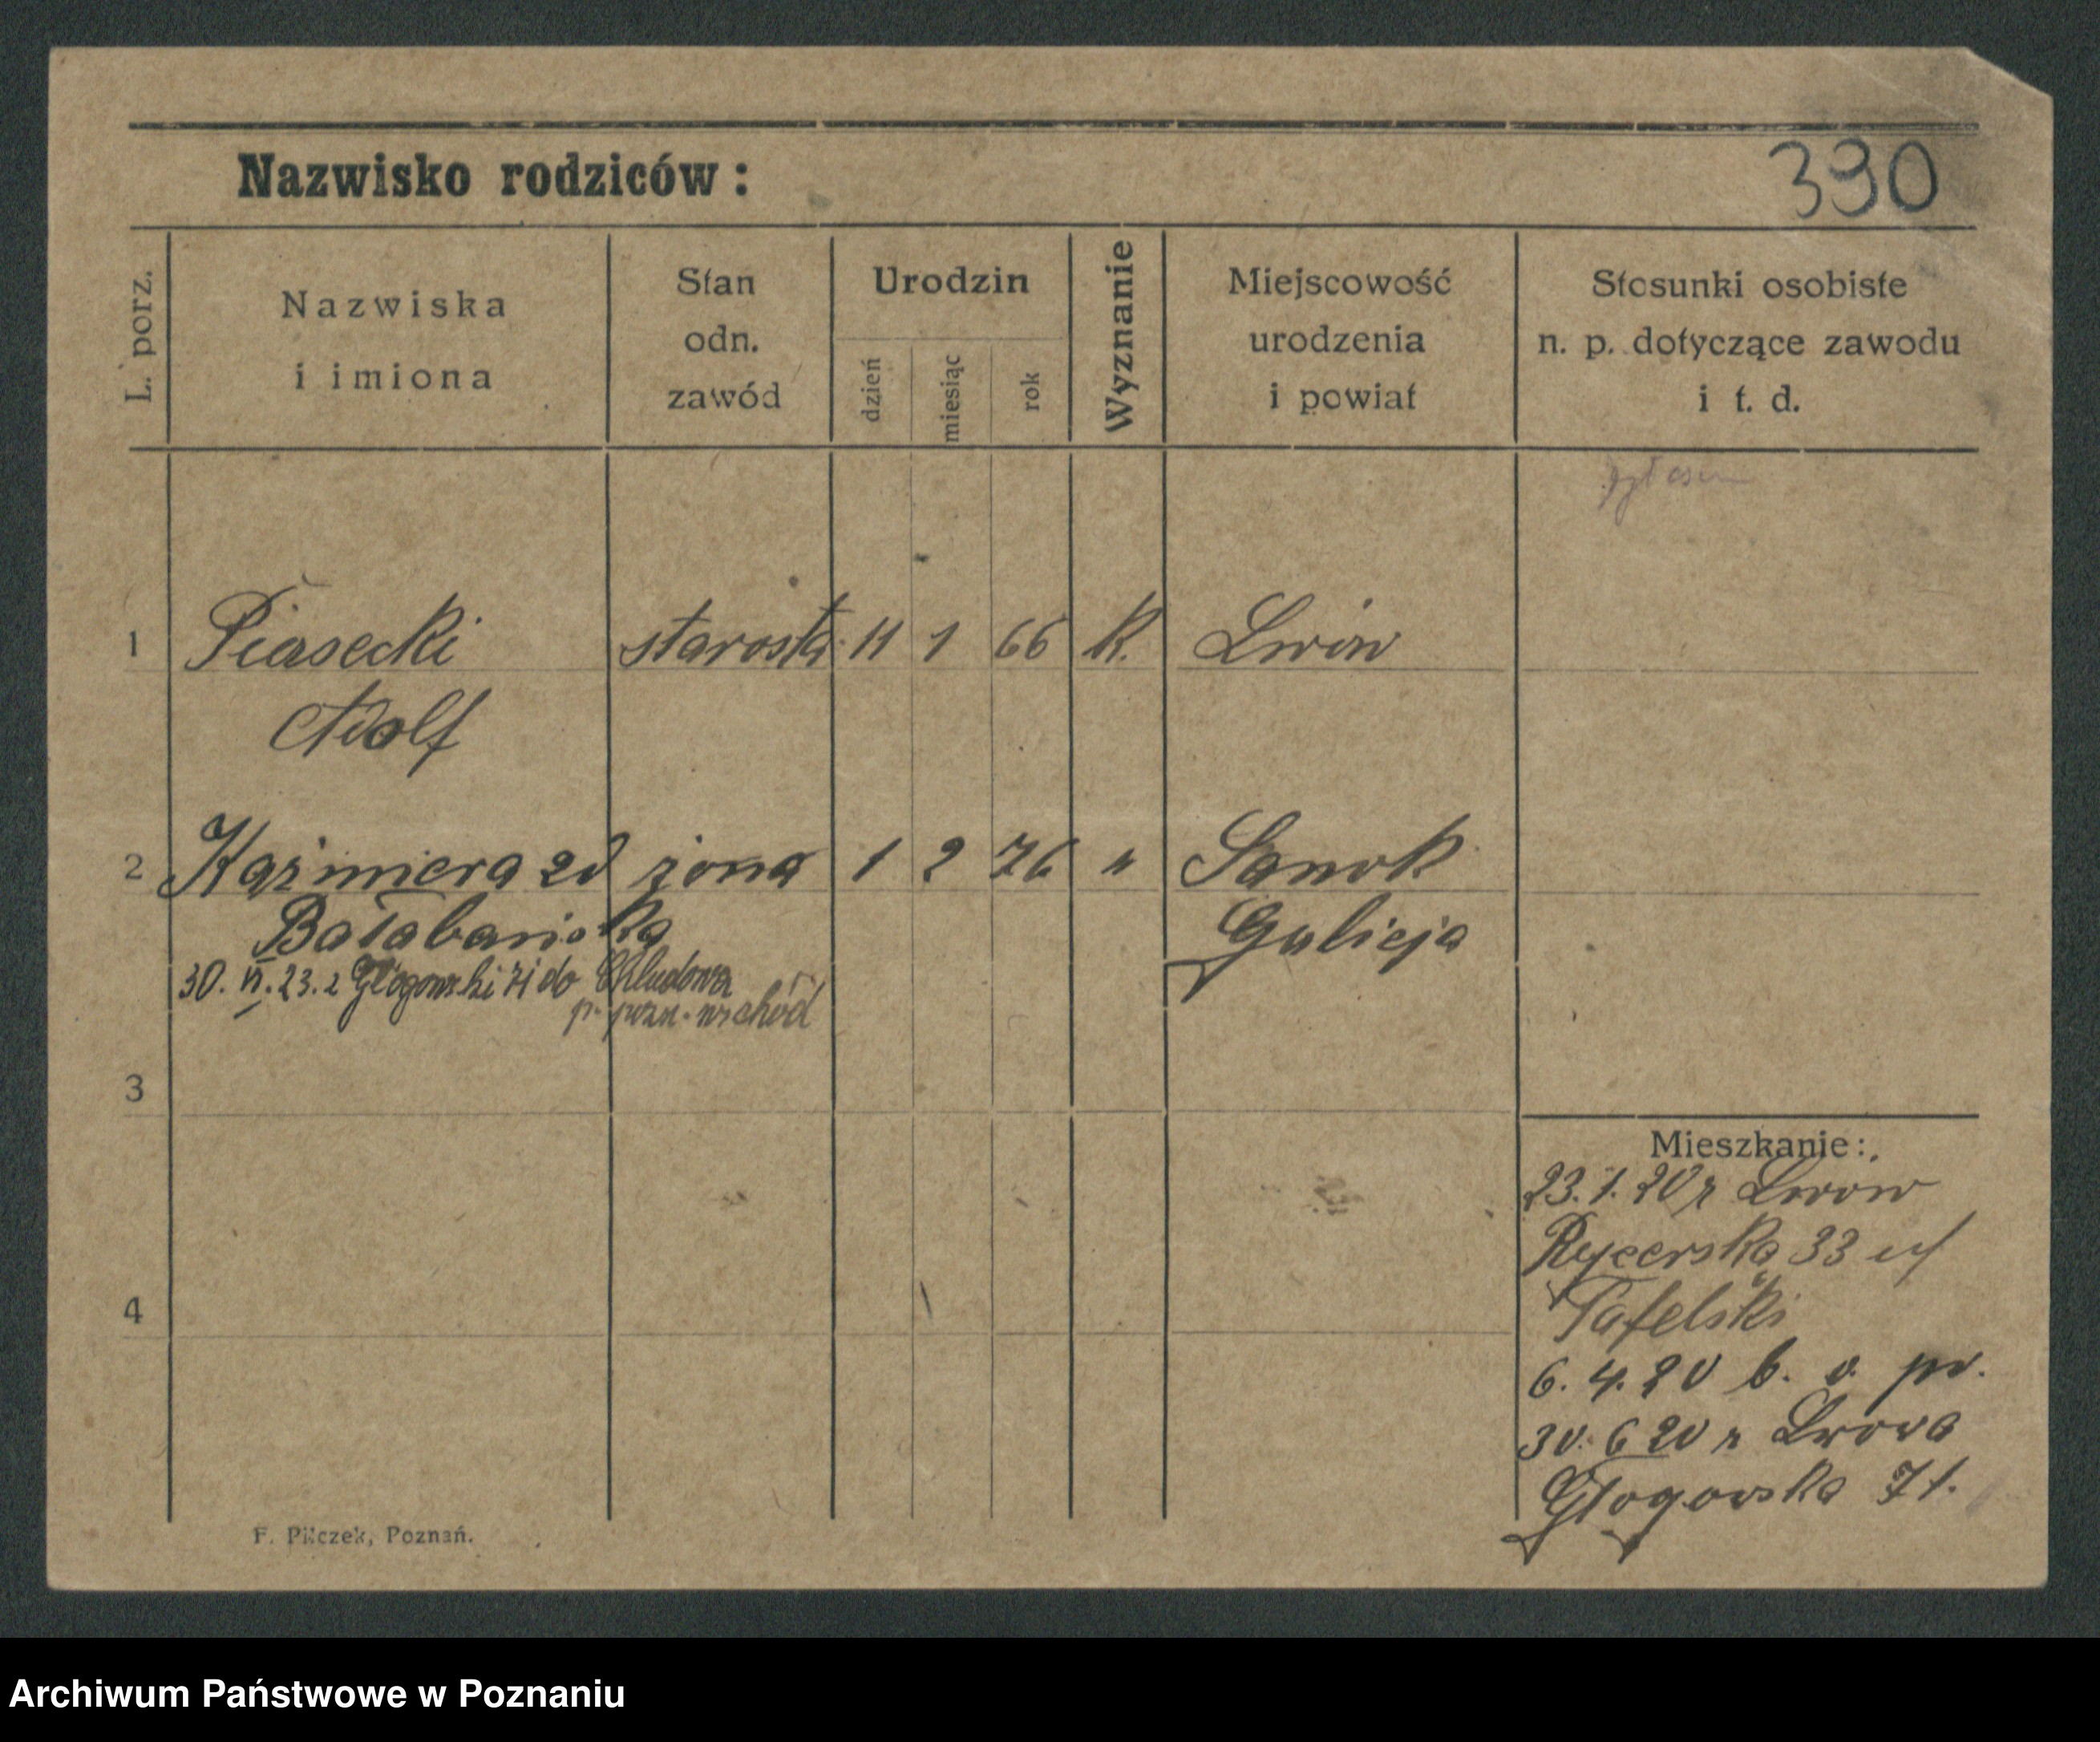 Nazwisko rodziców:
390
L. porz.
Nazwiska
i imiona
Stan
odn.
zawód
Urodzin
dzień
miesiąc
rok
Wyznanie
Miejscowość
urodzenia
i powiat
Stosunki osobiste
n. p. dotyczące zawodu
i t. d.
1 Piasecki starosta 11 1 66 k. Lwów
Adolf
2 Kaźmiera zd żona 1 2 76 " Sanok
Bałabańska Galicja
30. VI. 23. z Głogowski 71 do Chludowa
p. pozn. wschód
3
4
Mieszkanie:
23. 1. 20 z Lwow
Rycerska 33 u/
Tafelski
6. 4. 20 b. o. po.
30. 6 20 z Lwowa
Głogowska 71.
F. Pilczek, Poznań.
Archiwum Państwowe w Poznaniu